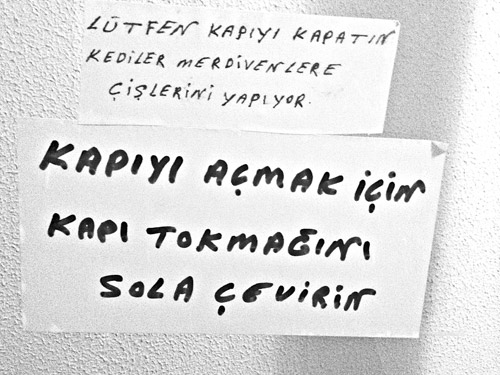 LÜTFEN KAPIYI KAPATIN
KEDİLER MERDİVENLERE
ÇİŞLERİNİ YAPIYOR.
KAPIYI AÇMAK İÇİN
KAPI TOKMAĞINI
SOLA ÇEVİRİN